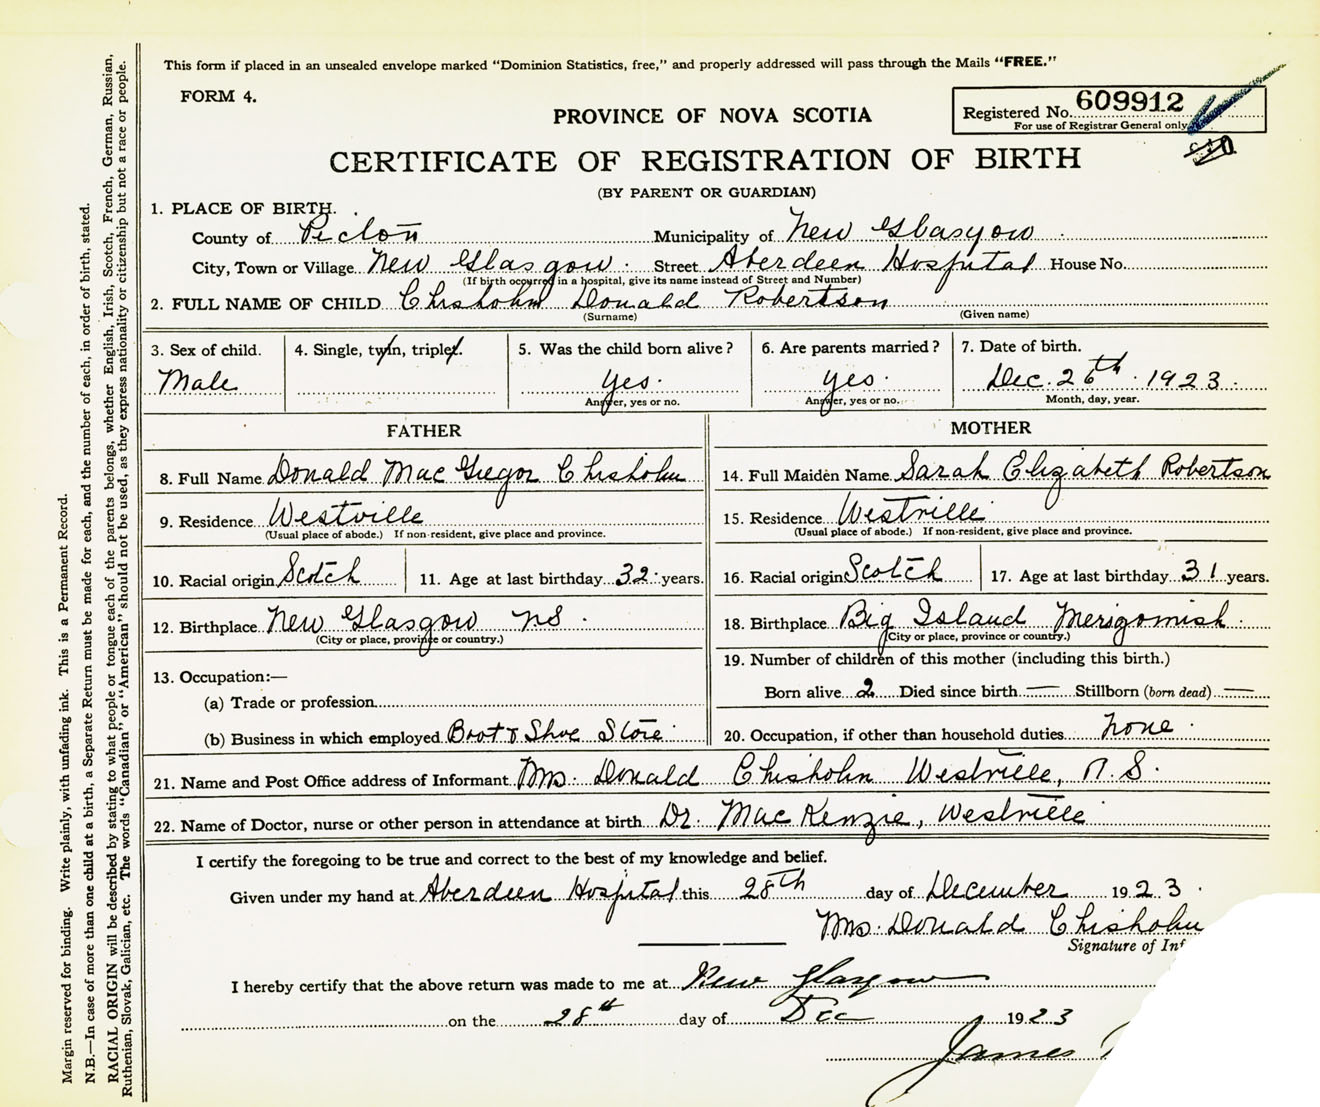 This form if placed in an unsealed envelope marked "Dominion Statistics, free," and properly addressed will pass through the Mails "FREE."
FORM 4.
PROVINCE OF NOVA SCOTIA
Registered No. 609912
For use of Registrar General only
CERTIFICATE OF REGISTRATION OF BIRTH
(BY PARENT OR GUARDIAN)
1. PLACE OF BIRTH.
County of Pictou Municipality of New Glasgow
City, Town or Village New Glasgow Street Aberdeen Hospital House No.
(If birth occurred in a hospital, give its name instead of Street and Number)
2. FULL NAME OF CHILD Chisholm Donald Robertson
(Surname) (Given name)
3. Sex of child. 4. Single, twin, triplet. 5. Was the child born alive? 6. Are parents married? 7. Date of birth.
Male Yes. Yes. Dec. 26th 1923.
Answer, yes or no. Answer, yes or no. Month, day, year.
FATHER MOTHER
8. Full Name Donald MacGregor Chisholm 14. Full Maiden Name Sarah Elizabeth Robertson
9. Residence Westville 15. Residence Westville
(Usual place of abode.) If non-resident, give place and province. (Usual place of abode.) If non-resident, give place and province.
10. Racial origin Scotch 11. Age at last birthday 32 years. 16. Racial origin Scotch 17. Age at last birthday 31 years.
12. Birthplace New Glasgow NS. 18. Birthplace Big Island Merigomish.
(City or place, province or country.) (City or place, province or country.)
13. Occupation:— 19. Number of children of this mother (including this birth.)
(a) Trade or profession Born alive 2 Died since birth — Stillborn (born dead) —
(b) Business in which employed Boot & Shoe Store. 20. Occupation, if other than household duties none.
21. Name and Post Office address of Informant Mrs. Donald Chisholm Westville, N.S.
22. Name of Doctor, nurse or other person in attendance at birth Dr. MacKenzie, Westville
I certify the foregoing to be true and correct to the best of my knowledge and belief.
Given under my hand at Aberdeen Hospital this 28th day of December 1923.
Mrs. Donald Chisholm
Signature of Inf
I hereby certify that the above return was made to me at New Glasgow
on the 28th day of Dec 1923
James
Margin reserved for binding. Write plainly, with unfading ink. This is a Permanent Record.
N.B.—In case of more than one child at a birth, a Separate Return must be made for each, and the number of each, in order of birth, stated.
RACIAL ORIGIN will be described by stating to what people or tongue each of the parents belongs, whether English, Irish, Scotch, French, German, Russian,
Ruthenian, Slovak, Galician, etc. The words "Canadian" or "American" should not be used, as they express nationality or citizenship but not a race or people.